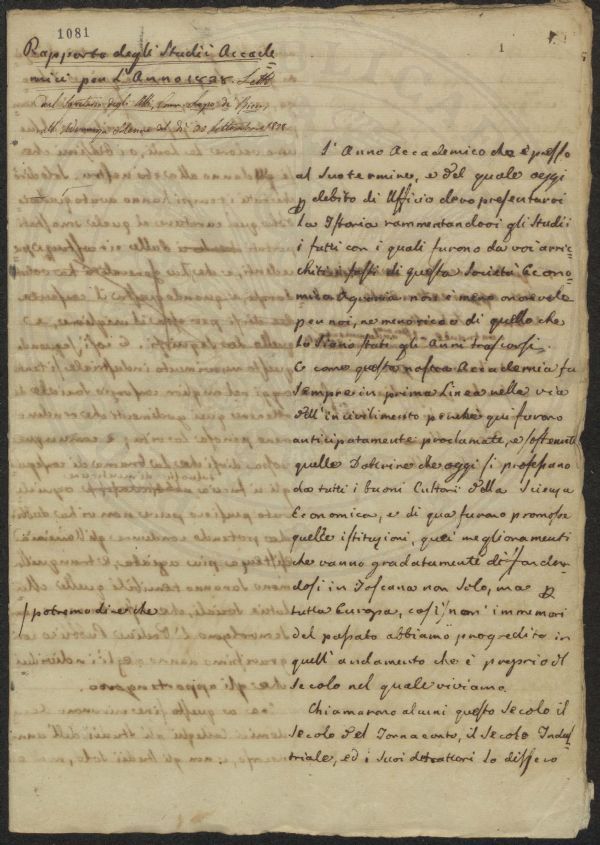 1081
1
Rapporto degli Studii Accade
mici per L'Anno 1838. Letto
dal Segretario degli Atti,
nell' Adunanza Solenne del dì 30 Settembre 1838
L'Anno Accademico che è presso
al suo termine, e del quale oggi
p debito di Ufficio devo presentarvi
la Istoria rammentandovi gli Studii
i fatti con i quali furono da voi arric-
chiti i fasti di questa Società Econo-
mico Agraria non è meno onorevole
per noi, ne meno ricco di quello che
lo siano stati gli Anni trascorsi.
E come questa nostra Accademia fu
sempre in prima Linea nella via
dell'incivilimento perchè qui furono
anticipatamente proclamate, e sostenute
quelle Dottrine che oggi si professano
da tutti i buoni Cultori della Scienza
Economica, e di qua furono promosse
quelle istituzioni, quei meglioramenti
che vanno gradatamente diffonden-
dosi in Toscana non solo, ma p
tutta Europa, così non immemori
/ potremo dire che
del passato abbiamo progredito in
quell'andamento che è proprio del
Secolo nel quale viviamo.
Chiamarono alcuni questo Secolo il
Secolo del Tornaconto, il Secolo Indus
triale, ed i suoi detrattori lo dissero